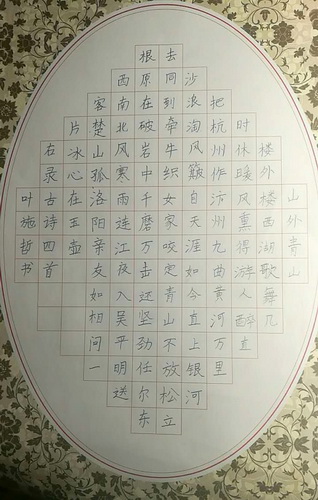 山外青山
楼外楼西湖歌舞几
时休暖风熏得游人醉直
把杭州作汴州九曲黄河万里
沙浪淘风簸自天涯如今直上银河
去同到牵牛织女家咬定青山不放松立
根原在破岩中千磨万击还坚劲任尔东
西南北风寒雨连江夜入吴平明送
客楚山孤洛阳亲友如相问一
片冰心在玉壶
右录古诗四首
叶施哲书